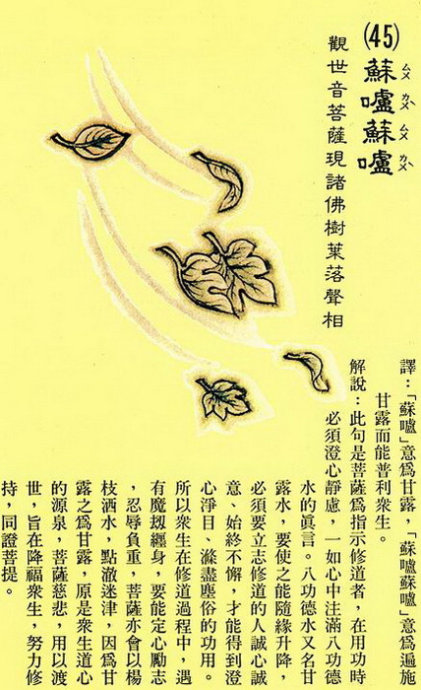 (45)
蘇嚧蘇嚧
ㄙㄨ ㄌㄨˋ ㄙㄨ ㄌㄨˋ
觀世音菩薩現諸佛樹葉落聲相
譯：「蘇嚧」意爲甘露，「蘇嚧蘇嚧」意爲遍施
甘露而能普利衆生。
解說：此句是菩薩爲指示修道者，在用功時
必須澄心靜慮，一如心中注滿八功德
水的眞言。八功德水又名甘
露水，要使之能隨緣升降，
必須要立志修道的人誠心誠
意、始終不懈，才能得到澄
心淨目、滌盡塵俗的功用。
所以衆生在修道過程中，遇
有魔刼纏身，要能定心勵志
，忍辱負重，菩薩亦會以楊
枝洒水，點澈迷津，因爲甘
露之爲甘露，原是衆生道心
的源泉，菩薩慈悲，用以渡
世，旨在降福衆生，努力修
持，同證菩提。